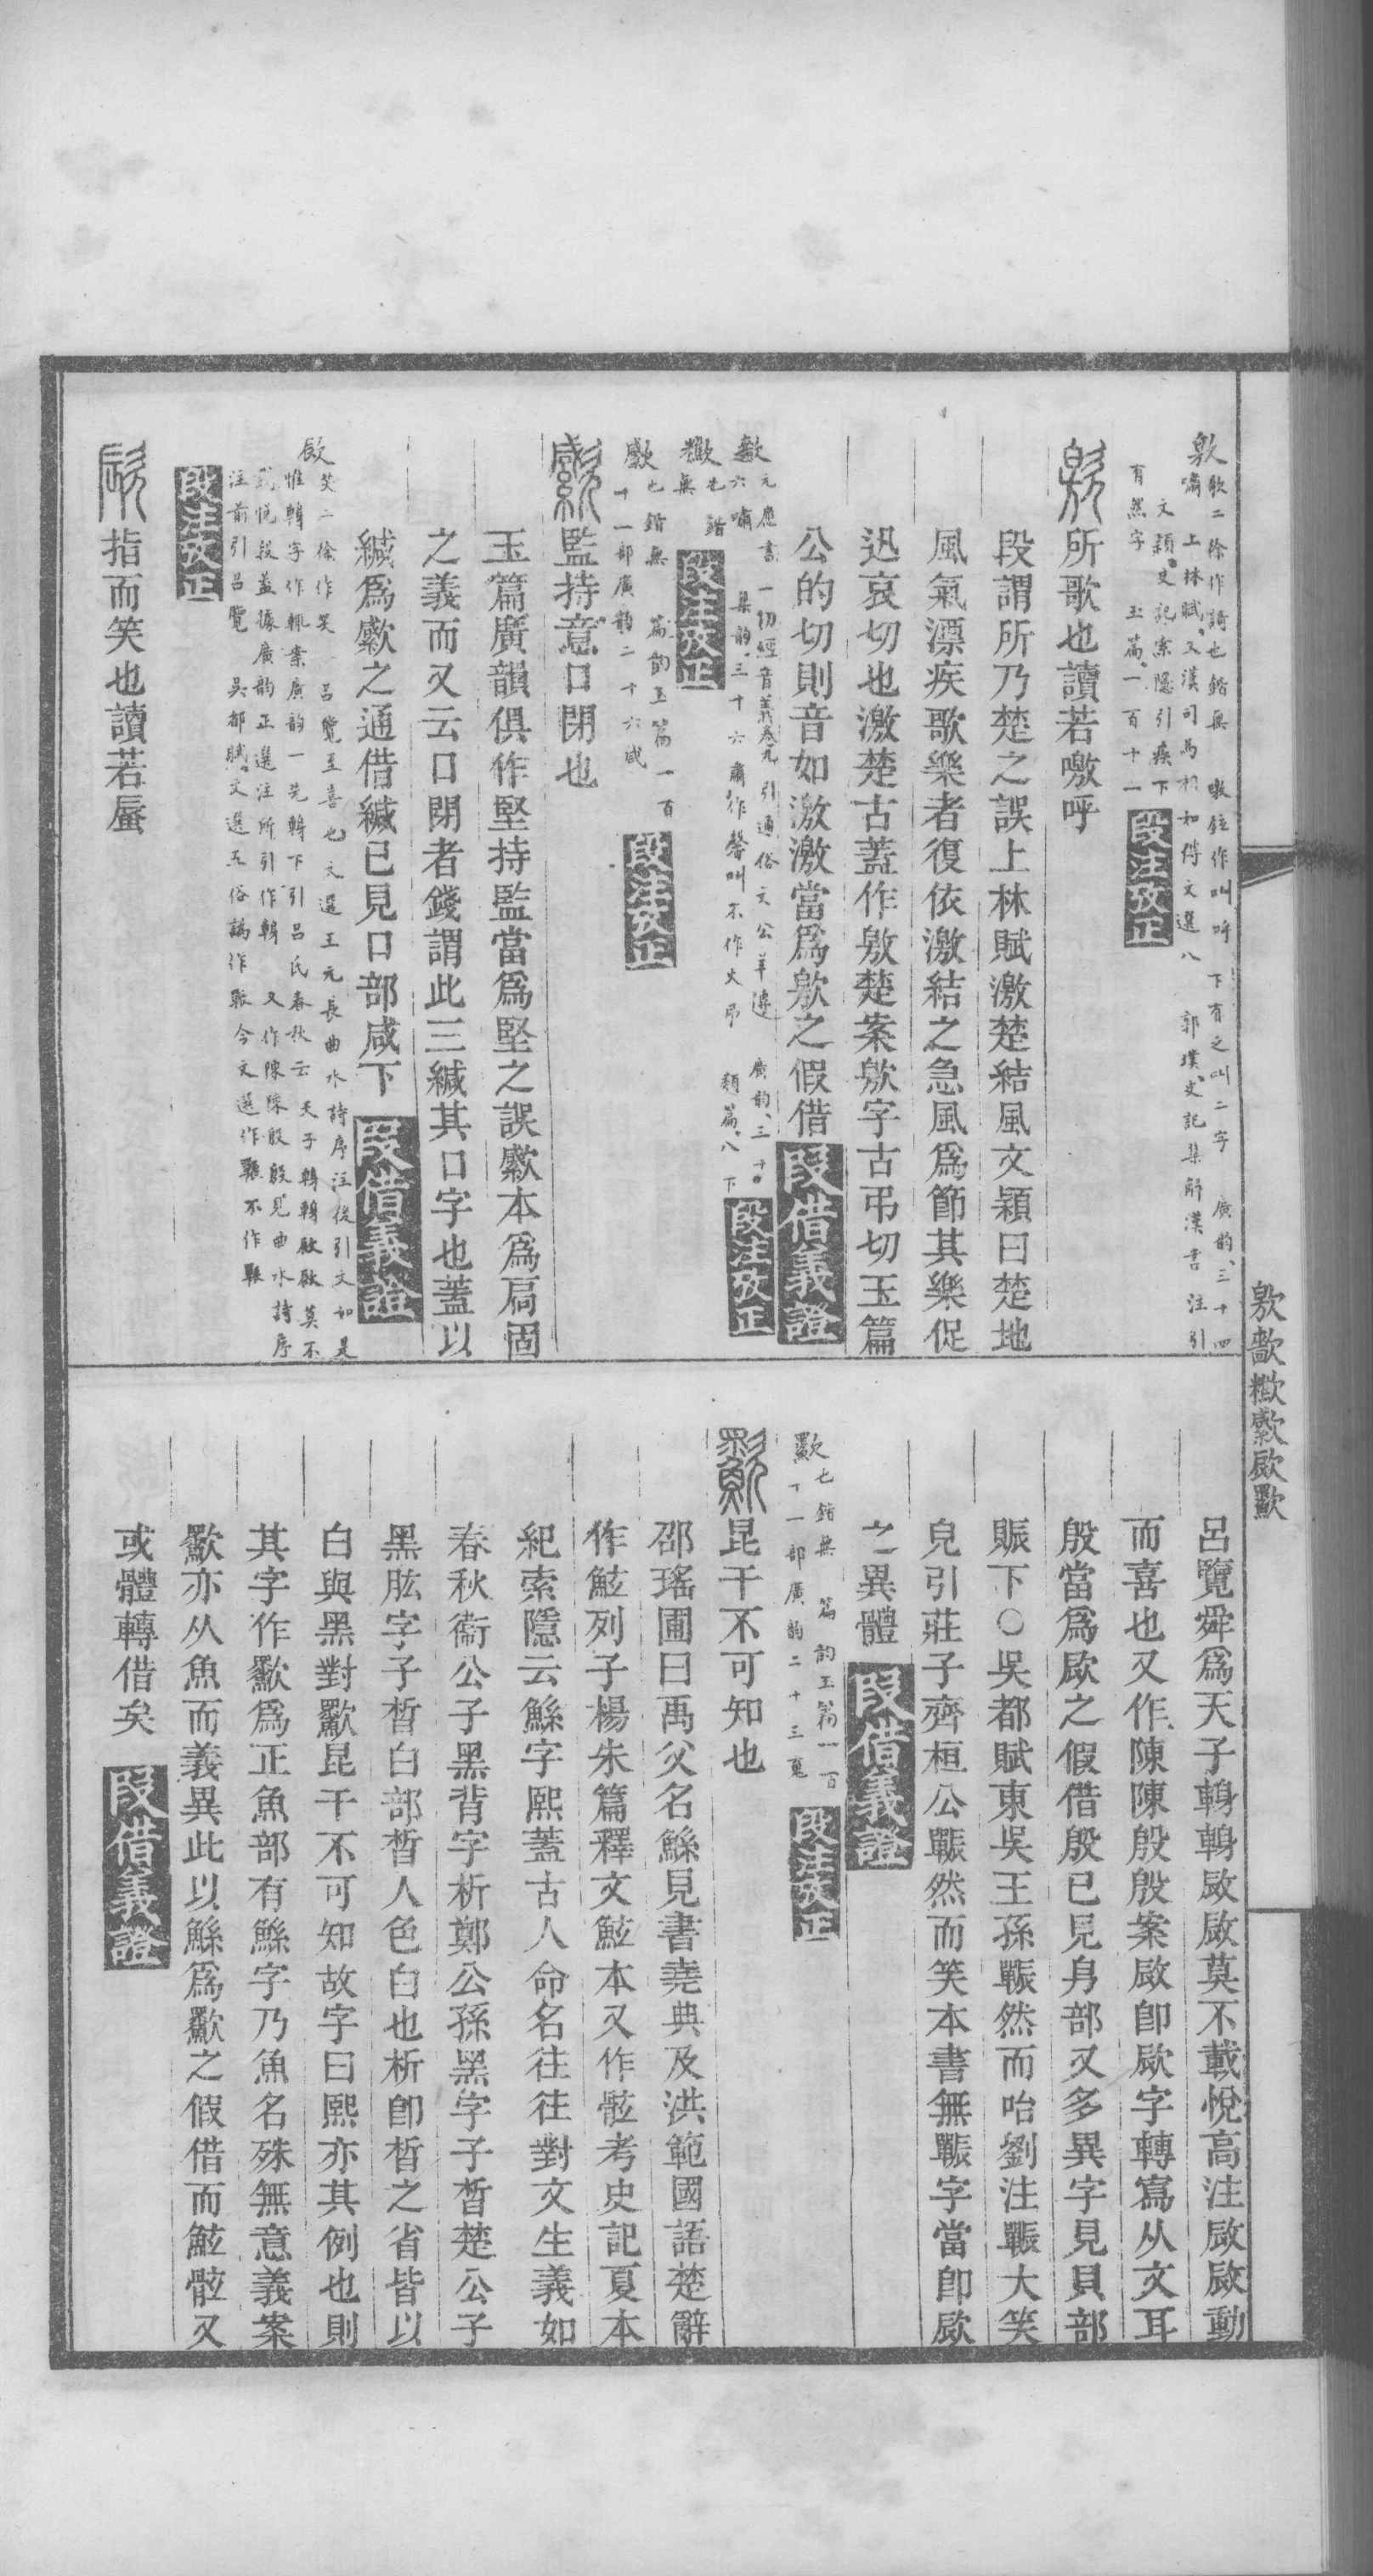 敫歌二徐作謌也鍇無 噭鉉作叫呼 下有之叫二字 廣韵三十四
嘯 上林賦又漢司馬相如傳文選八 郭璞史記集解漢書注引
文穎史記索隱引疾下
有然字 玉篇一百十一 段注攷正
所歌也讀若噭呼
段謂所乃楚之誤上林賦激楚結風文穎曰楚地
風氣漂疾歌樂者復依激結之急風爲節其樂促
迅哀切也激楚古蓋作敫楚案敫字古弔切玉篇
公的切則音如激激當爲敫之假借 段借義證
元應書一切經音義卷九引通俗文公羊傳 廣韵三十
六嘯 集韵三十六 類篇八下 段注攷正
歡也鍇
無 段注攷正
也鍇無 篇韵玉篇一百
十一部廣韵二十六咸 段注攷正
監持意口閉也
玉篇廣韻俱作堅持監當爲堅之誤歞本爲扃固
之義而又云口閉者錢謂此三緘其口字也蓋以
緘爲之通借緘已見口部咸下 段借義證
笑二徐作笑 呂覽至喜也文選王元長曲水詩序注後引文如是
惟鶾字作輒案廣韵一先鶾下引呂氏春秋云天子鶾鶾啟啟莫不
載悅段蓋據廣韵正選注所引作鶾 又作陳陳殷殷見曲水詩序
注前引呂覽 吳都賦文選五俗譌作 今文選作囅不作
段注攷正
指而笑也讀若蜃
敫歡
呂覽舜爲天子鶾鶾啟啟莫不載悅高注啟啟動
而喜也又作陳陳殷殷案啟卽字轉寫从文耳
殷當爲之假借殷已見㐆部又多異字見貝部
賑下○吳都賦東吳王孫囅然而咍劉注囅大笑
皃引莊子齊桓公囅然而笑本書無囅字當卽
之異體 段借義證
也鍇無 篇韵玉篇一百
十一部廣韵二十三䰟 段注攷正
昆干不可知也
邵瑤圃曰禹父名鯀見書堯典及洪範國語楚辭
作鮌列子楊朱篇釋文鮌本又作骸考史記夏本
紀索隱云鯀字熙蓋古人命名往往對文生義如
春秋衞公子黑背字析鄭公孫黑字子晳楚公子
黑肱字子晳白部晳人色白也析卽晳之省皆以
白與黑對昆干不可知故字曰熙亦其例也則
其字作爲正魚部有鯀字乃魚名殊無意義案
亦从魚而義異此以鯀爲之假借而鮌又
或體轉借矣 段借義證